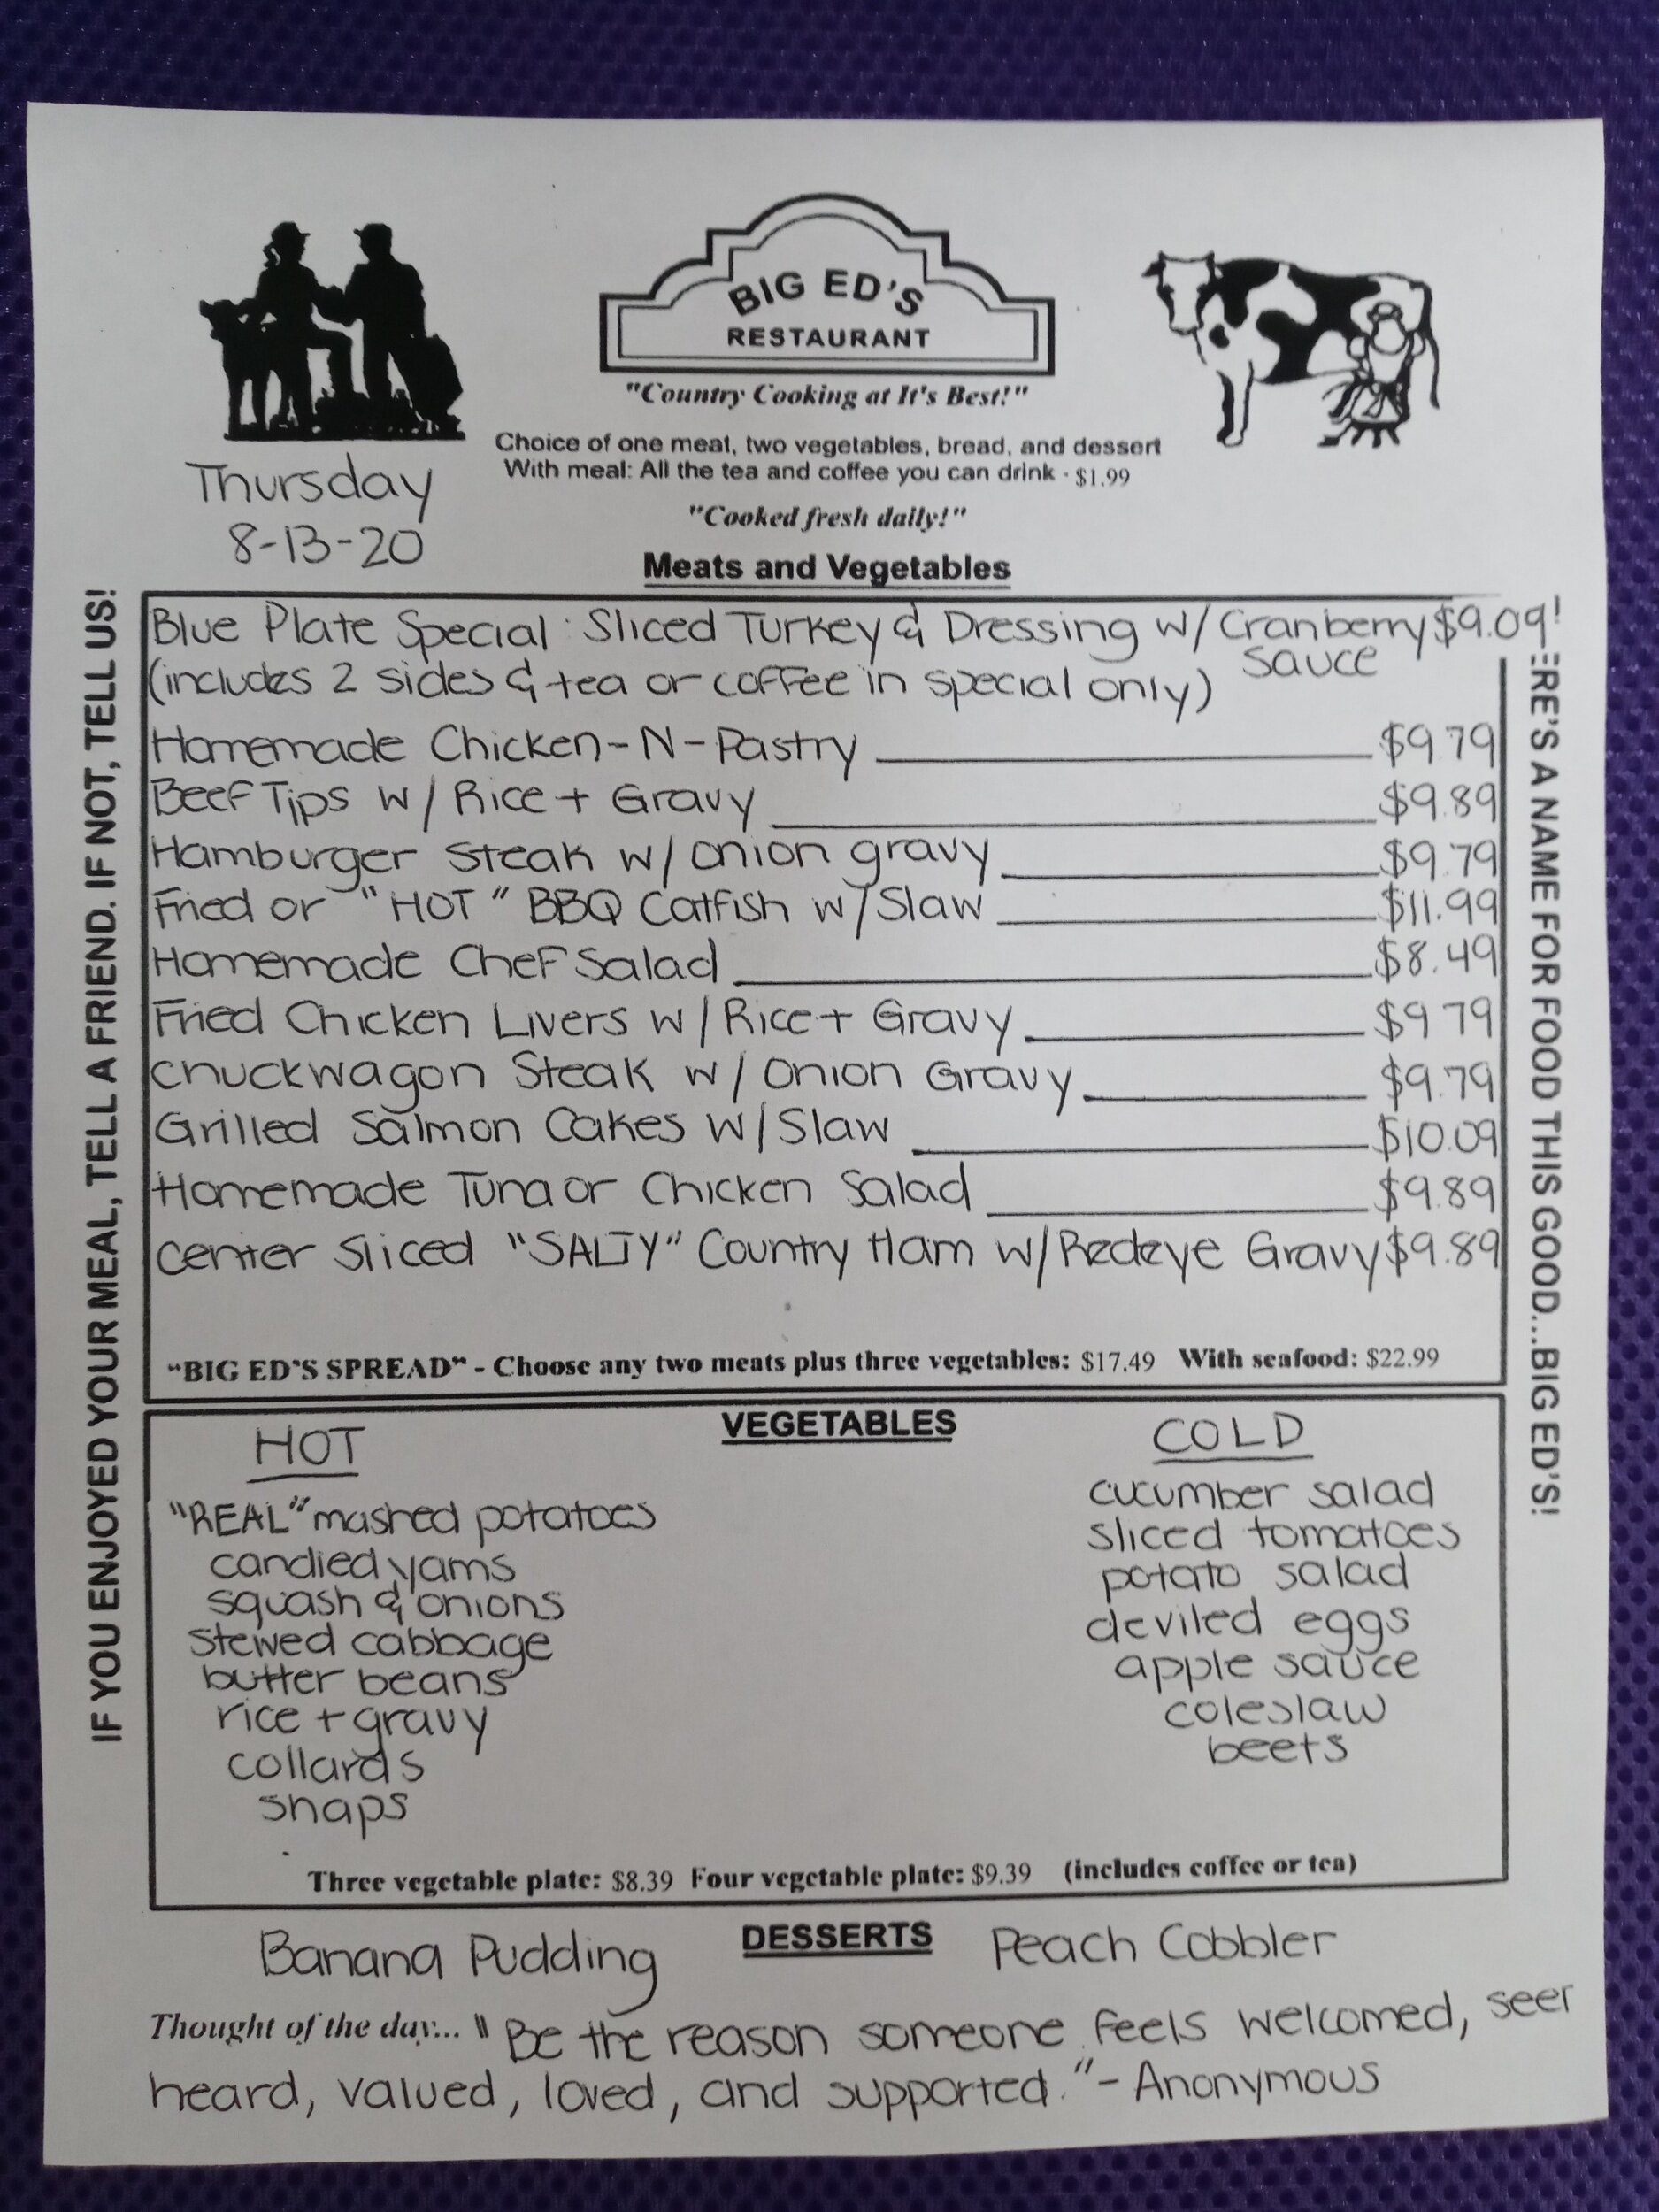 BIG ED'S
RESTAURANT
"Country Cooking at It's Best!"
Choice of one meat, two vegetables, bread, and dessert
With meal: All the tea and coffee you can drink - $1.99
"Cooked fresh daily!"
Thursday
8-13-20
Meats and Vegetables
IF YOU ENJOYED YOUR MEAL, TELL A FRIEND. IF NOT, TELL US!
Blue Plate Special: Sliced Turkey & Dressing w/ Cranberry $9.09
sauce
(includes 2 sides & tea or coffee in special only)
Homemade Chicken-N-Pastry $9.79
Beef Tips w/ Rice + Gravy $9.89
Hamburger Steak w/ onion gravy $9.79
Fried or "HOT" BBQ Catfish w/ Slaw $11.99
Homemade Chef Salad $8.49
Fried Chicken Livers w/ Rice + Gravy $9.79
Chuckwagon Steak w/ Onion Gravy $9.79
Grilled Salmon Cakes w/ Slaw $10.09
Homemade Tuna or Chicken Salad $9.89
Center Sliced "SALTY" Country Ham w/ Redeye Gravy $9.89
"BIG ED'S SPREAD" - Choose any two meats plus three vegetables: $17.49 With seafood: $22.99
ERE'S A NAME FOR FOOD THIS GOOD...BIG ED'S!
VEGETABLES
HOT
"REAL" mashed potatoes
candied yams
squash & onions
stewed cabbage
butter beans
rice + gravy
collards
snaps
COLD
cucumber salad
sliced tomatoes
potato salad
deviled eggs
apple sauce
coleslaw
beets
Three vegetable plate: $8.39 Four vegetable plate: $9.39 (includes coffee or tea)
DESSERTS
Banana Pudding Peach Cobbler
Thought of the day... "Be the reason someone feels welcomed, seen
heard, valued, loved, and supported." - Anonymous